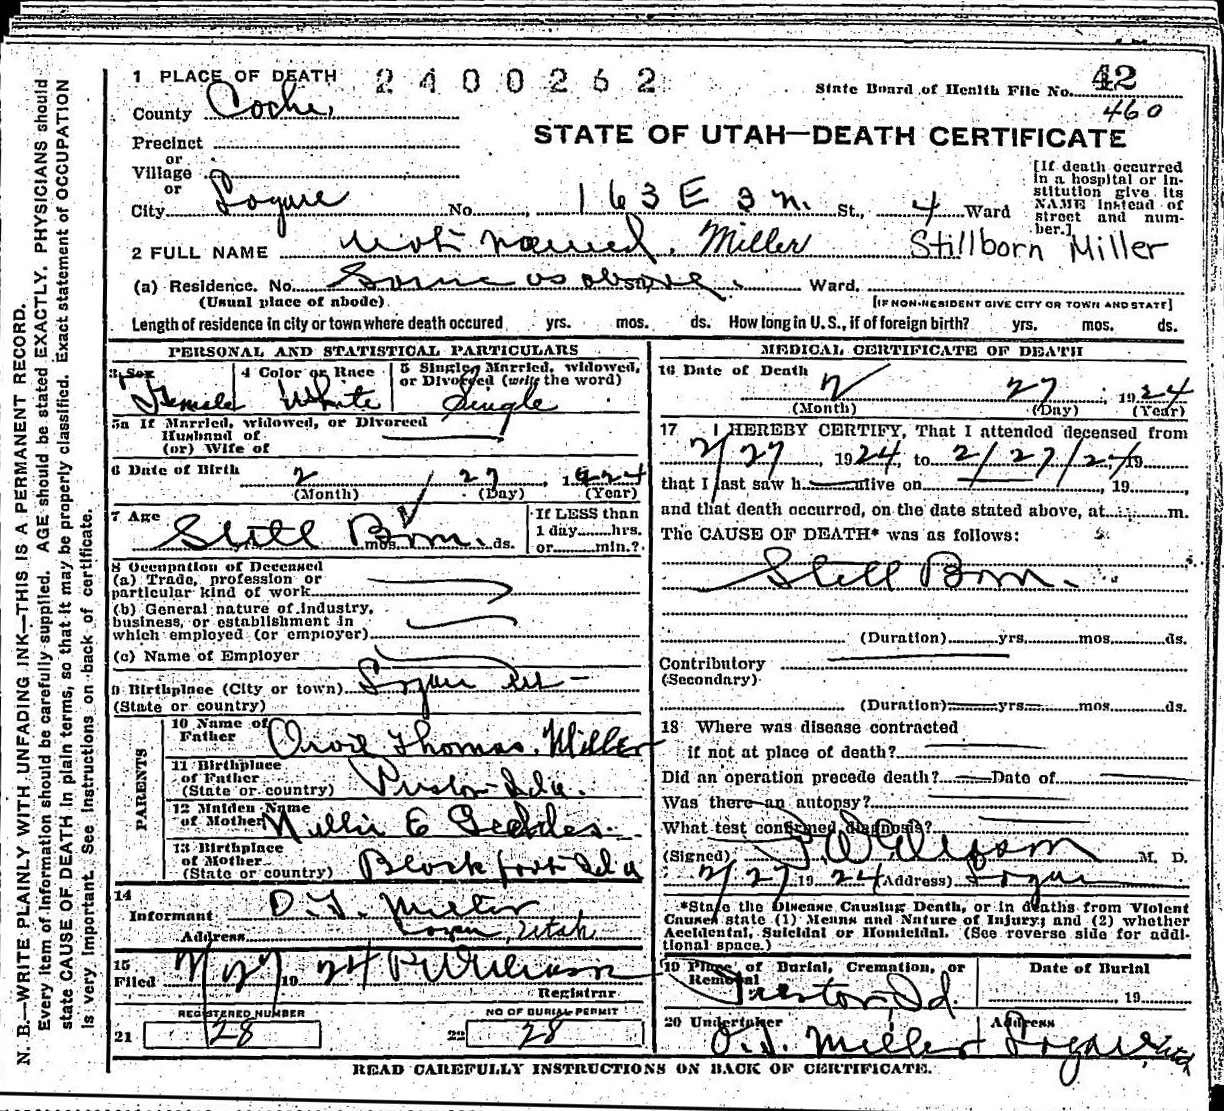 N. B.—WRITE PLAINLY WITH UNFADING INK—THIS IS A PERMANENT RECORD.
Every item of information should be carefully supplied. AGE should be stated EXACTLY. PHYSICIANS should
state CAUSE OF DEATH in plain terms, so that it may be properly classified. Exact statement of OCCUPATION
is very important. See instructions on back of certificate.
1 PLACE OF DEATH 2400262
State Board of Health File No. 42
460
County Cache
STATE OF UTAH—DEATH CERTIFICATE
Precinct
or
Village
or
City Logan No. 163 E 3 N. St., 4 Ward
[If death occurred
in a hospital or in-
stitution give its
NAME instead of
street and num-
ber.]
2 FULL NAME not named. Miller Stillborn Miller
(a) Residence. No. Same as above. Ward.
(Usual place of abode) [IF NON-RESIDENT GIVE CITY OR TOWN AND STATE]
Length of residence in city or town where death occured yrs. mos. ds. How long in U. S., if of foreign birth? yrs. mos. ds.
PERSONAL AND STATISTICAL PARTICULARS
3 Sex Female
4 Color or Race White
5 Single, Married, widowed,
or Divorced (write the word)
Single
5a If Married, widowed, or Divorced
Husband of
(or) Wife of
6 Date of Birth 2 27, 1924
(Month) (Day) (Year)
7 Age Still Born
yrs. mos. ds.
If LESS than
1 day hrs.
or min.?
8 Occupation of Deceased
(a) Trade, profession or
particular kind of work
(b) General nature of industry,
business, or establishment in
which employed (or employer)
(c) Name of Employer
9 Birthplace (City or town) Logan Ut
(State or country)
PARENTS
10 Name of
Father Thomas Miller
11 Birthplace
of Father
(State or country) Preston Ida.
12 Maiden Name
of Mother Nellie E Geddes
13 Birthplace
of Mother
(State or country) Ida
14
Informant O. T. Miller
Address Logan, Utah
15
Filed 2/27 1924
Registrar.
REGISTERED NUMBER
21 28
NO OF BURIAL PERMIT
22 28
MEDICAL CERTIFICATE OF DEATH
16 Date of Death 2 27, 1924
(Month) (Day) (Year)
17 I HEREBY CERTIFY, That I attended deceased from
2/27, 1924, to 2/27/24 19
that I last saw h alive on , 19 ,
and that death occurred, on the date stated above, at m.
The CAUSE OF DEATH* was as follows:
Still Born.
(Duration) yrs. mos. ds.
Contributory
(Secondary)
(Duration) yrs. mos. ds.
18 Where was disease contracted
if not at place of death?
Did an operation precede death? Date of
Was there an autopsy?
What test confirmed diagnosis?
(Signed) M. D.
2/27 1924 (Address) Logan
*State the Disease Causing Death, or in deaths from Violent
Causes state (1) Means and Nature of Injury; and (2) whether
Accidental, Suicidal or Homicidal. (See reverse side for addi-
tional space.)
19 Place of Burial, Cremation, or
Removal Preston, Id.
Date of Burial
19
20 Undertaker O. T. Miller
Address Logan, Utah
READ CAREFULLY INSTRUCTIONS ON BACK OF CERTIFICATE.